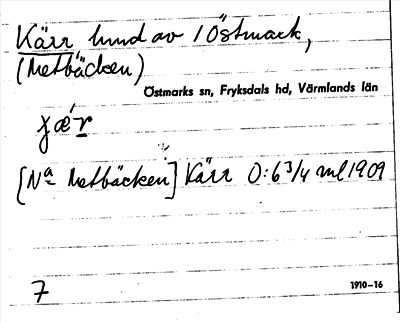 Kärr lund av 1 Östmark,
(Metbäcken)
Östmarks sn, Fryksdals hd, Värmlands län
[Nᵃ Metbäcken] Kärr 0:6 3/4 ml 1909
7
1910–16